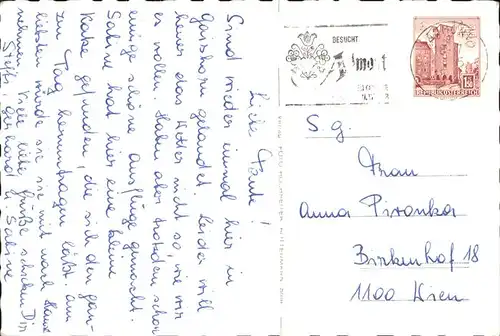 Liebe Tante!
Sind wieder einmal hier in
Gaishorn gelandet. Leider will
heuer das Wetter nicht so, wie wir
es wollen. Haben aber trotzdem schon
einige schöne Ausflüge gemacht.
Sabine hat hier eine kleine
Katze gefunden, die sich den gan-
zen Tag herumtragen läßt. Am
liebsten würde sie sie mit nach Hause
nehmen. Viele liebe Grüße schicken Dir
Steffi, Gerhard u. Sabine
BESUCHT
REPUBLIK ÖSTERREICH
S. g.
Frau
Anna Pironka
Birkenhof 18
1100 Wien